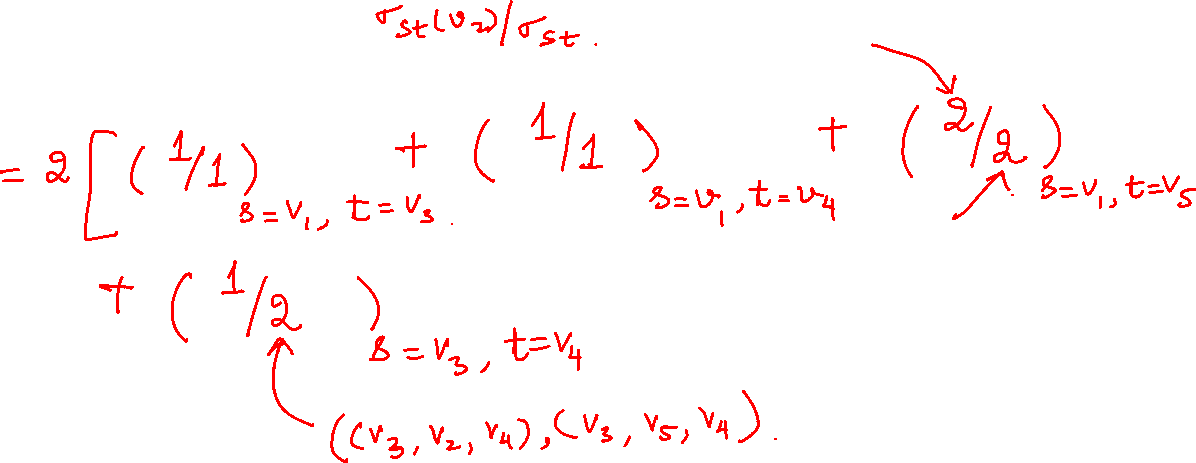 σst(v2)/σst.
= 2[(1/1)s=v1, t=v3. + (1/1)s=v1, t=v4 + (2/2)s=v1, t=v5
+ (1/2)s=v3, t=v4
((v3, v2, v4), (v3, v5, v4).